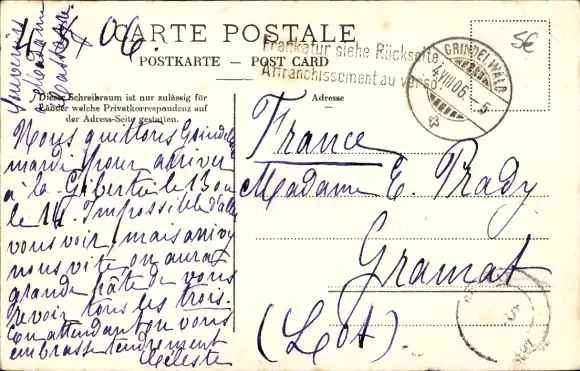 CARTE POSTALE
POSTKARTE — POST CARD
4.8.06.
Frankatur siehe Rückseite
Affranchissement au verso
GRINDELWALD
4.VIII.06. - 5
5€
Dieser Schreibraum ist nur zulässig für
Länder welche Privatkorrespondenz auf
der Adress-Seite gestatten.
Adresse
Souvenirs
à Madame
Nous quittons Grindel
mardi pour arriver
à la Gibertie le 13 ou
le 14. Impossible d'aller
vous voir, mais arrivez
nous vite, on aura
grande hâte de vous
revoir tous les trois.
En attendant on vous
embrasse tendrement
Céleste
France
Madame E. Prady
Gramat
(Lot)